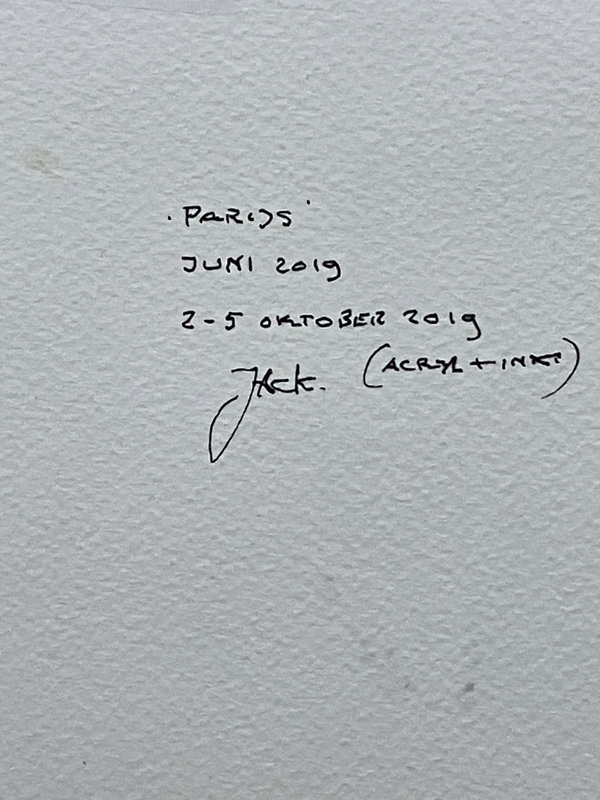 'PARIJS'
JUNI 2019
2-5 OKTOBER 2019
Jack. (ACRYL + INKT)